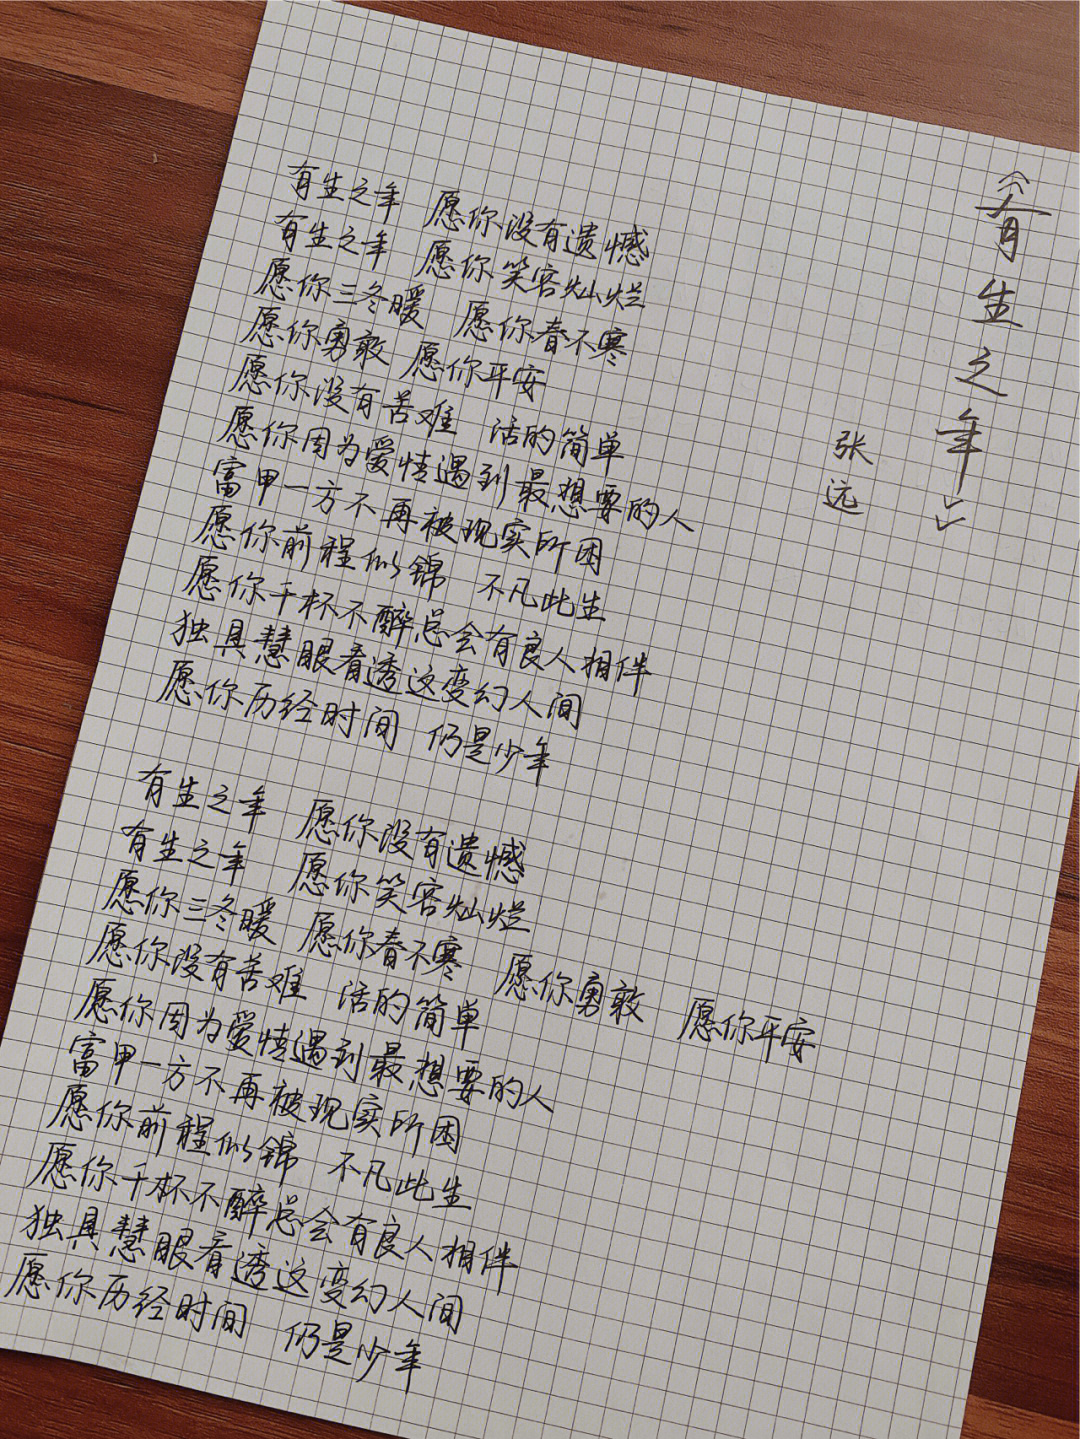 《有生之年》
张远
有生之年 愿你没有遗憾
有生之年 愿你笑容灿烂
愿你三冬暖 愿你春不寒
愿你勇敢 愿你平安
愿你没有苦难 活的简单
愿你因为爱情遇到最想要的人
富甲一方不再被现实所困
愿你前程似锦 不凡此生
愿你千杯不醉总会有良人相伴
独具慧眼看透这变幻人间
愿你历经时间 仍是少年
有生之年 愿你没有遗憾
有生之年 愿你笑容灿烂
愿你三冬暖 愿你春不寒 愿你勇敢 愿你平安
愿你没有苦难 活的简单
愿你因为爱情遇到最想要的人
富甲一方不再被现实所困
愿你前程似锦 不凡此生
愿你千杯不醉总会有良人相伴
独具慧眼看透这变幻人间
愿你历经时间 仍是少年